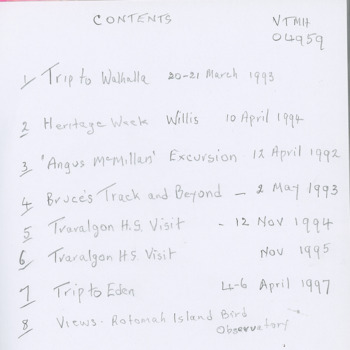 CONTENTS
VTMH
04959
1 Trip to Walhalla 20-21 March 1993
2 Heritage Week Willis 10 April 1994
3 'Angus McMillan' Excursion 12 April 1992
4 Bruce's Track and Beyond - 2 May 1993
5 Traralgon H.S. Visit - 12 Nov 1994
6 Traralgon H S Visit Nov 1995
7 Trip to Eden 4-6 April 1997
8 Views - Rotomah Island Bird
Observatory